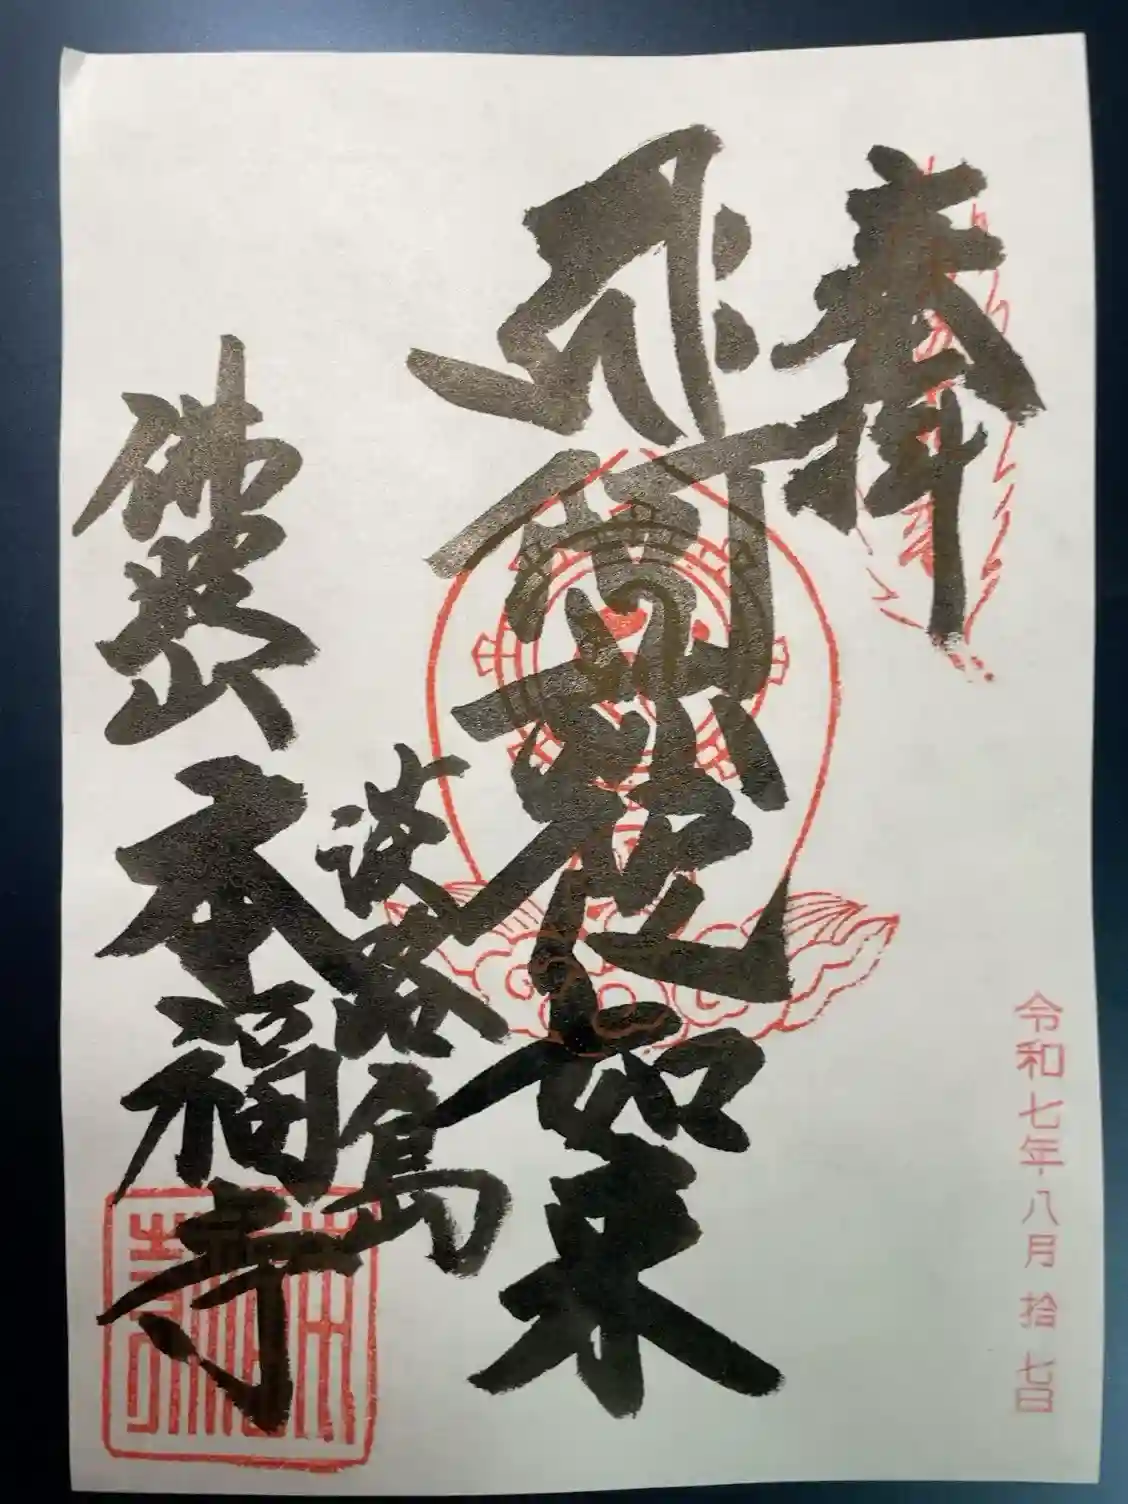 奉拝
阿弥陀如来
淡路島
本福寺
令和七年八月拾七日